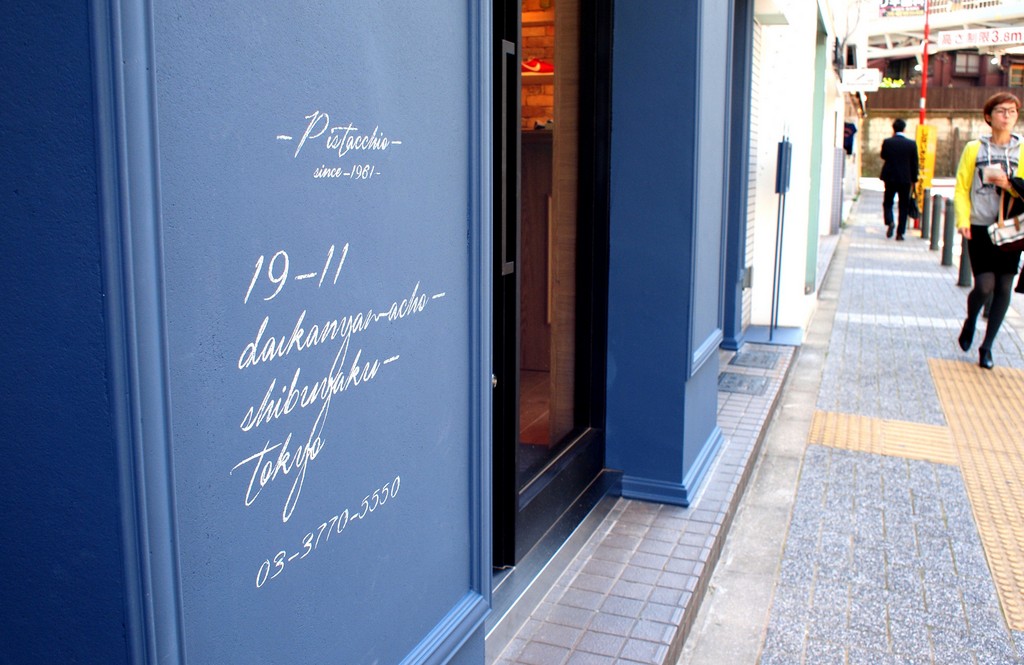 -Pistacchio-
since-1981-
19-11
daikanyamacho-
shibuyaku-
tokyo
03-3770-5550
高さ制限3.8m